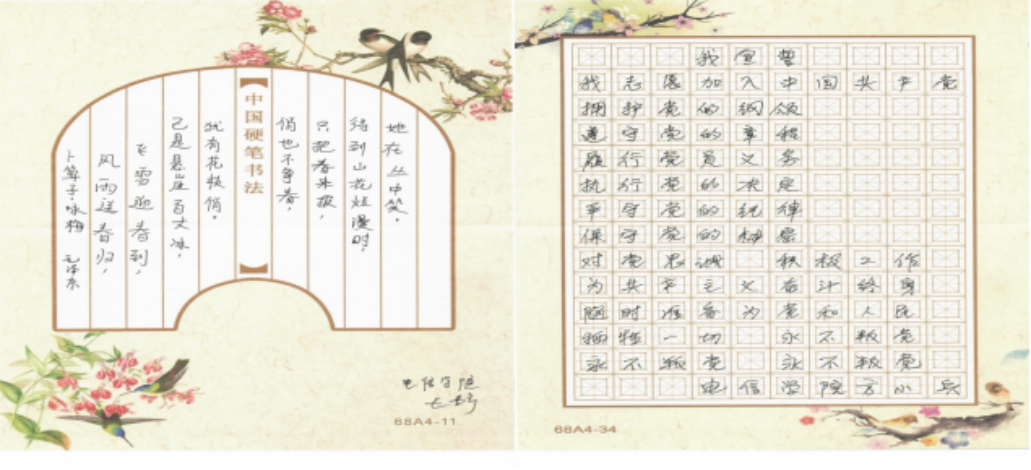 卜算子·咏梅 毛泽东
风雨送春归，
飞雪迎春到，
已是悬崖百丈冰，
犹有花枝俏。
【中国硬笔书法】
俏也不争春，
只把春来报，
待到山花烂漫时，
她在丛中笑。
电信学院
68A4-11
我宣誓
我志愿加入中国共产党
拥护党的纲领
遵守党的章程
履行党员义务
执行党的决定
严守党的纪律
保守党的秘密
对党忠诚 积极工作
为共产主义奋斗终身
随时准备为党和人民
牺牲一切 永不叛党
永不叛党 永不叛党
电信学院方小兵
68A4-34